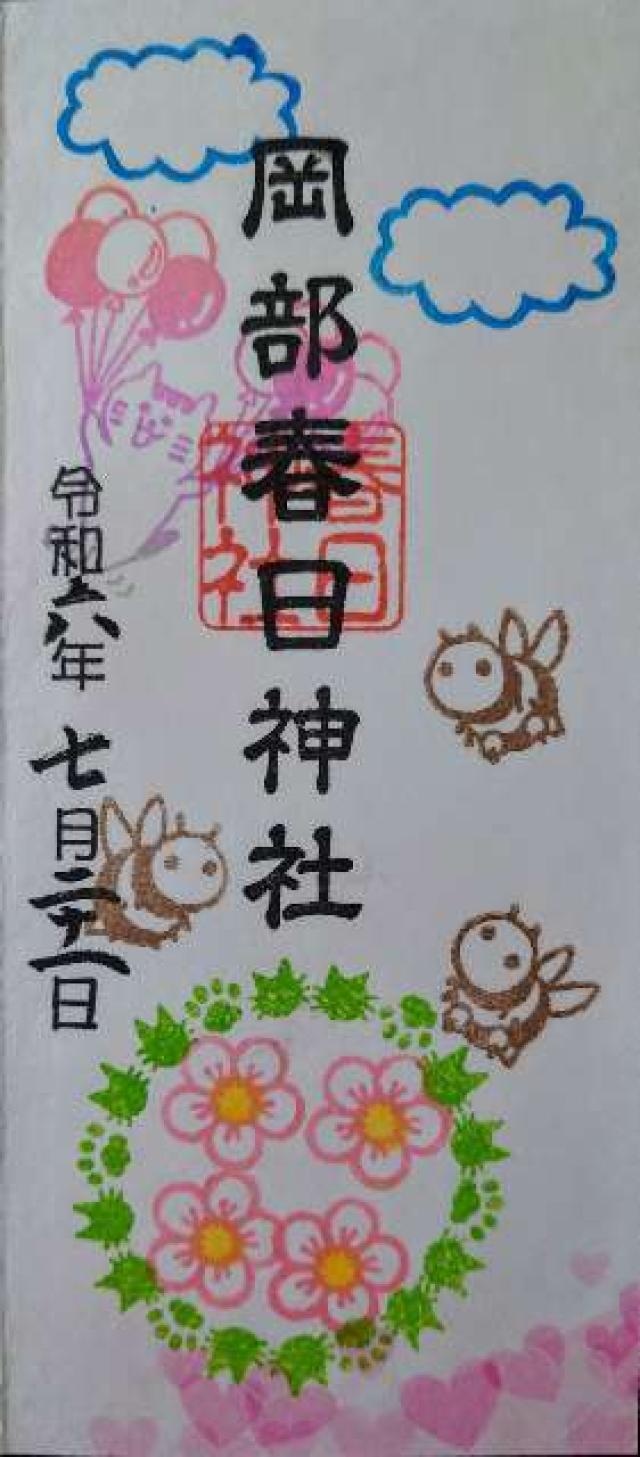 岡部春日神社
春日
神社
令和六年七月二十一日